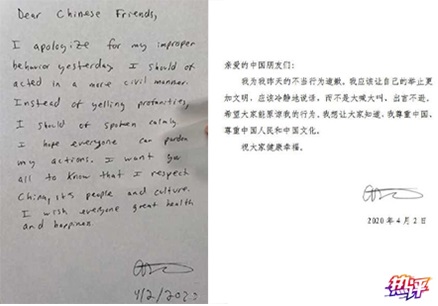 Dear Chinese Friends,
I apologize for my improper
behavior yesterday. I should of
acted in a more civil manner.
Instead of yelling profanities,
I should of spoken calmly
I hope everyone can pardon
my actions. I want you
all to know that I respect
China, its people and culture.
I wish everyone great health
and happiness
4/2/2020
亲爱的中国朋友们：
我为我昨天的不当行为道歉。我应该让自己的举止更
加文明，应该冷静地说话，而不是大喊大叫、出言不逊。
希望大家能原谅我的行为。我想让大家知道，我尊重中国、
尊重中国人民和中国文化。
祝大家健康幸福。
2020 年 4 月 2 日
热评